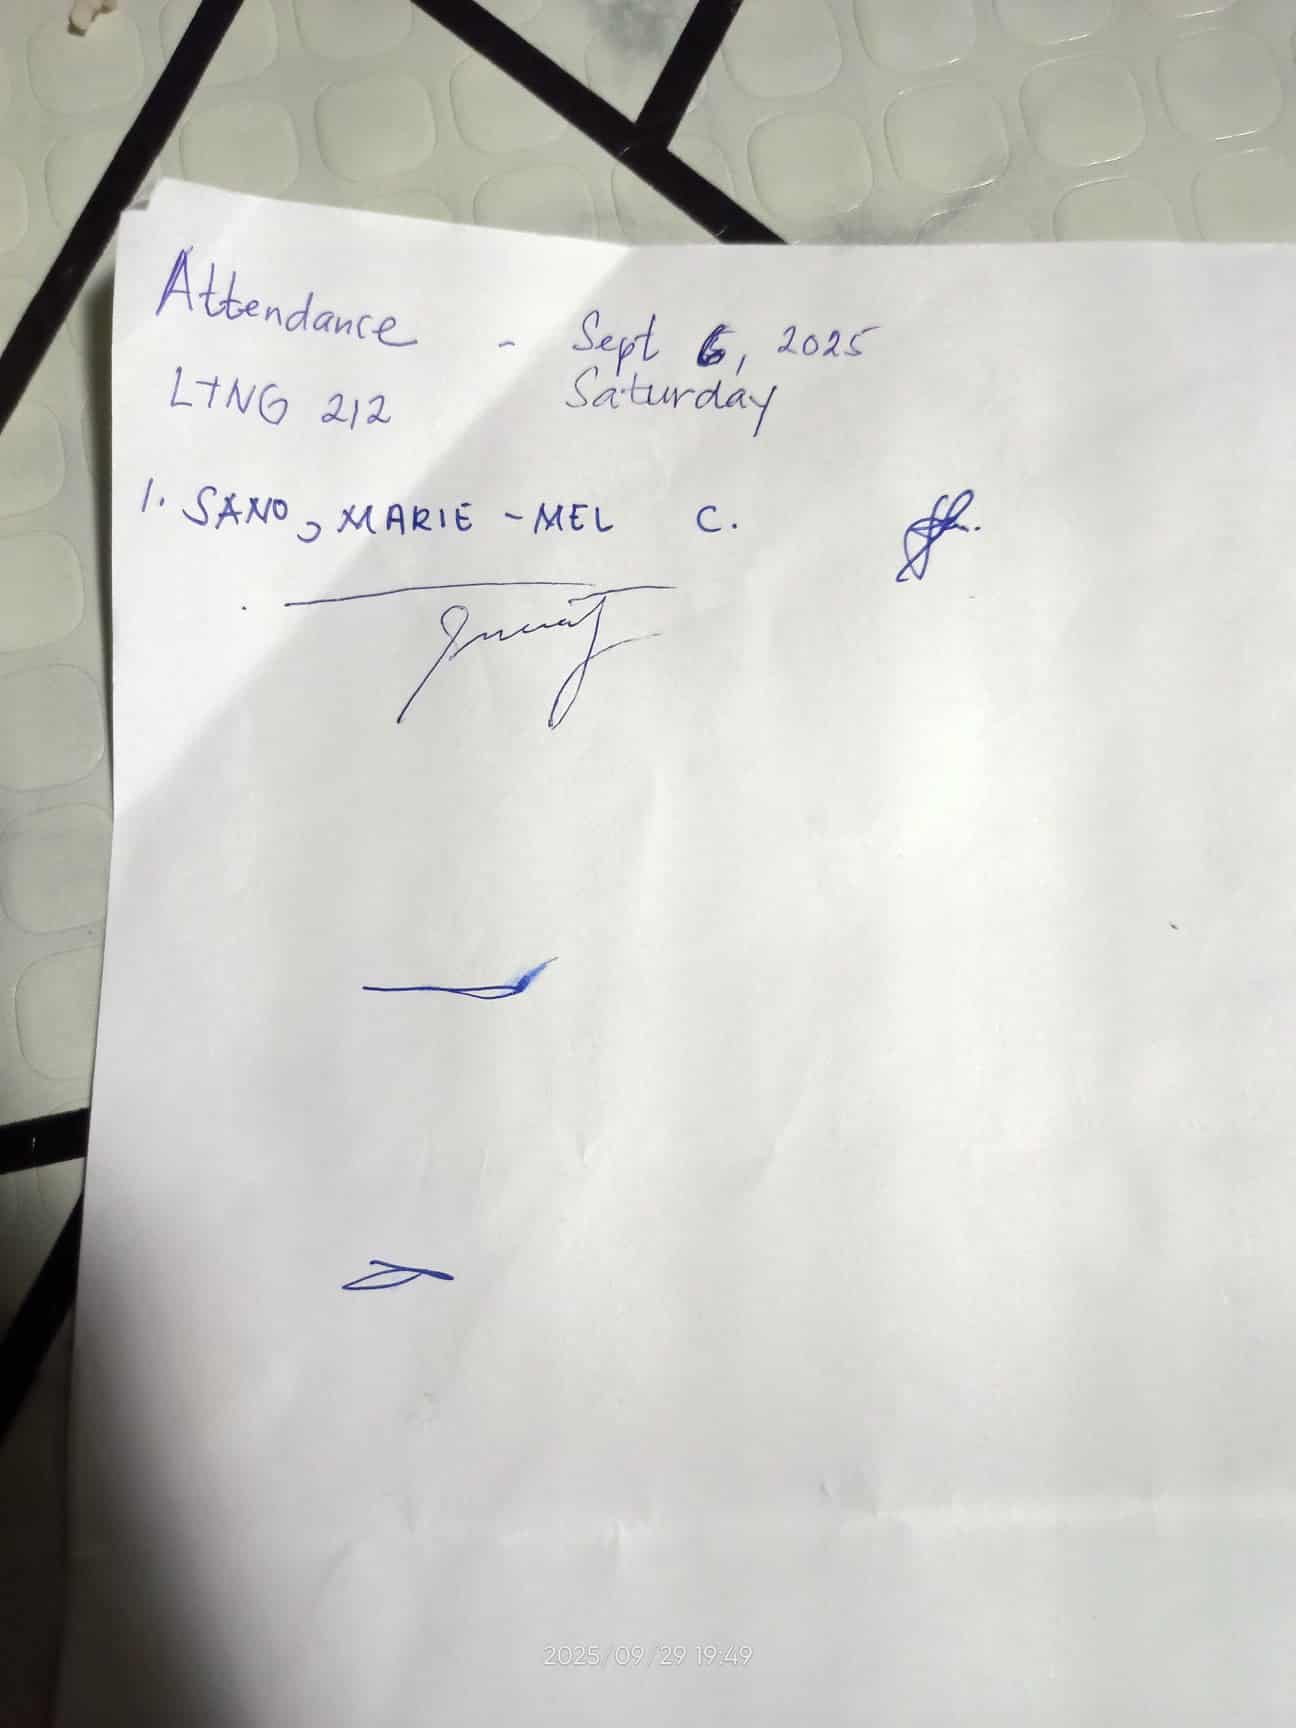 Attendance - Sept 6, 2025
LTNG 212 Saturday
1. SANO, MARIE-MEL C.
2025/09/29 19:49